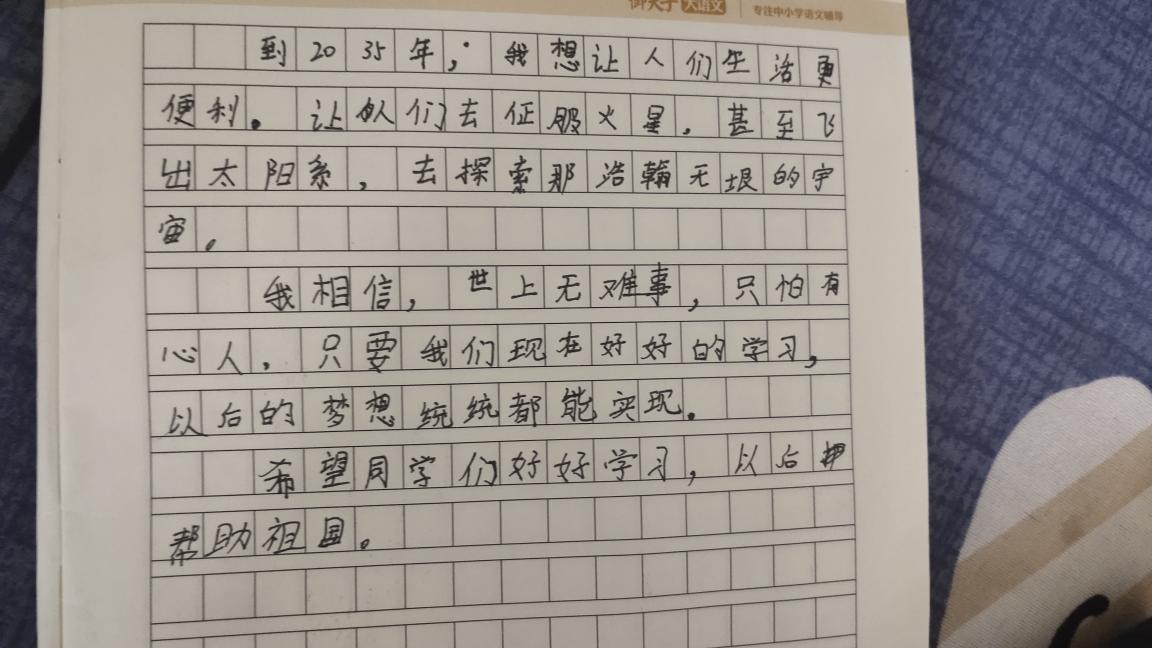 大语文 专注中小学语文辅导
到2035年，我想让人们生活更
便利。让人们去征服火星，甚至飞
出太阳系，去探索那浩翰无垠的宇
宙。
我相信，世上无难事，只怕有
心人，只要我们现在好好的学习，
以后的梦想统统都能实现。
希望同学们好好学习，以后
帮助祖国。